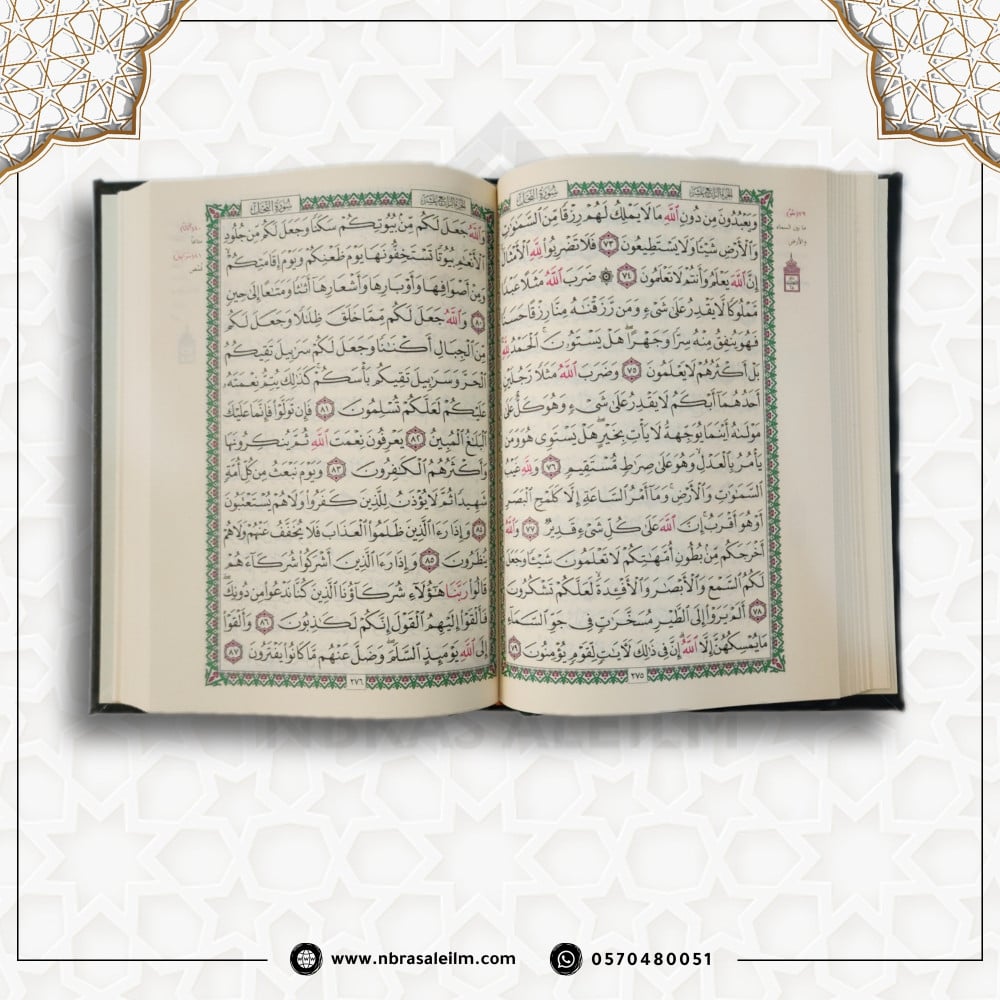 الجزء الرابع عشر
سورة النحل
وَيَعْبُدُونَ مِن دُونِ ٱللَّهِ مَا لَا يَمْلِكُ لَهُمْ رِزْقًا مِّنَ ٱلسَّمَٰوَٰتِ
وَٱلْأَرْضِ شَيْـًٔا وَلَا يَسْتَطِيعُونَ ٧٣ فَلَا تَضْرِبُوا۟ لِلَّهِ ٱلْأَمْثَالَ
إِنَّ ٱللَّهَ يَعْلَمُ وَأَنتُمْ لَا تَعْلَمُونَ ٧٤ ۞ ضَرَبَ ٱللَّهُ مَثَلًا عَبْدًا
مَّمْلُوكًا لَّا يَقْدِرُ عَلَىٰ شَىْءٍ وَمَن رَّزَقْنَٰهُ مِنَّا رِزْقًا حَسَنًا
فَهُوَ يُنفِقُ مِنْهُ سِرًّا وَجَهْرًا ۖ هَلْ يَسْتَوُۥنَ ۚ ٱلْحَمْدُ لِلَّهِ
بَلْ أَكْثَرُهُمْ لَا يَعْلَمُونَ ٧٥ وَضَرَبَ ٱللَّهُ مَثَلًا رَّجُلَيْنِ
أَحَدُهُمَآ أَبْكَمُ لَا يَقْدِرُ عَلَىٰ شَىْءٍ وَهُوَ كَلٌّ عَلَىٰ
مَوْلَىٰهُ أَيْنَمَا يُوَجِّههُّ لَا يَأْتِ بِخَيْرٍ ۖ هَلْ يَسْتَوِى هُوَ وَمَن
يَأْمُرُ بِٱلْعَدْلِ ۙ وَهُوَ عَلَىٰ صِرَٰطٍ مُّسْتَقِيمٍ ٧٦ وَلِلَّهِ غَيْبُ
ٱلسَّمَٰوَٰتِ وَٱلْأَرْضِ ۚ وَمَآ أَمْرُ ٱلسَّاعَةِ إِلَّا كَلَمْحِ ٱلْبَصَرِ
أَوْ هُوَ أَقْرَبُ ۚ إِنَّ ٱللَّهَ عَلَىٰ كُلِّ شَىْءٍ قَدِيرٌ ٧٧ وَٱللَّهُ
أَخْرَجَكُم مِّنۢ بُطُونِ أُمَّهَٰتِكُمْ لَا تَعْلَمُونَ شَيْـًٔا وَجَعَلَ
لَكُمُ ٱلسَّمْعَ وَٱلْأَبْصَٰرَ وَٱلْأَفْـِٔدَةَ ۙ لَعَلَّكُمْ تَشْكُرُونَ
٧٨ أَلَمْ يَرَوْا۟ إِلَى ٱلطَّيْرِ مُسَخَّرَٰتٍ فِى جَوِّ ٱلسَّمَآءِ
مَا يُمْسِكُهُنَّ إِلَّا ٱللَّهُ ۗ إِنَّ فِى ذَٰلِكَ لَءَايَٰتٍ لِّقَوْمٍ يُؤْمِنُونَ ٧٩
٢٧٥
الجزء الرابع عشر
سورة النحل
وَٱللَّهُ جَعَلَ لَكُم مِّنۢ بُيُوتِكُمْ سَكَنًا وَجَعَلَ لَكُم مِّن جُلُودِ
ٱلْأَنْعَٰمِ بُيُوتًا تَسْتَخِفُّونَهَا يَوْمَ ظَعْنِكُمْ وَيَوْمَ إِقَامَتِكُمْ ۙ
وَمِنْ أَصْوَافِهَا وَأَوْبَارِهَا وَأَشْعَارِهَآ أَثَٰثًا وَمَتَٰعًا إِلَىٰ حِينٍ
٨٠ وَٱللَّهُ جَعَلَ لَكُم مِّمَّا خَلَقَ ظِلَٰلًا وَجَعَلَ لَكُم
مِّنَ ٱلْجِبَالِ أَكْنَٰنًا وَجَعَلَ لَكُمْ سَرَٰبِيلَ تَقِيكُمُ
ٱلْحَرَّ وَسَرَٰبِيلَ تَقِيكُم بَأْسَكُمْ ۚ كَذَٰلِكَ يُتِمُّ نِعْمَتَهُۥ
عَلَيْكُمْ لَعَلَّكُمْ تُسْلِمُونَ ٨١ فَإِن تَوَلَّوْا۟ فَإِنَّمَا عَلَيْكَ
ٱلْبَلَٰغُ ٱلْمُبِينُ ٨٢ يَعْرِفُونَ نِعْمَتَ ٱللَّهِ ثُمَّ يُنكِرُونَهَا
وَأَكْثَرُهُمُ ٱلْكَٰفِرُونَ ٨٣ وَيَوْمَ نَبْعَثُ مِن كُلِّ أُمَّةٍ
شَهِيدًا ثُمَّ لَا يُؤْذَنُ لِلَّذِينَ كَفَرُوا۟ وَلَا هُمْ يُسْتَعْتَبُونَ
٨٤ وَإِذَا رَءَا ٱلَّذِينَ ظَلَمُوا۟ ٱلْعَذَابَ فَلَا يُخَفَّفُ عَنْهُمْ وَلَا هُمْ
يُنظَرُونَ ٨٥ وَإِذَا رَءَا ٱلَّذِينَ أَشْرَكُوا۟ شُرَكَآءَهُمْ
قَالُوا۟ رَبَّنَا هَٰٓؤُلَآءِ شُرَكَآؤُنَا ٱلَّذِينَ كُنَّا نَدْعُوا۟ مِن دُونِكَ ۖ
فَأَلْقَوْا۟ إِلَيْهِمُ ٱلْقَوْلَ إِنَّكُمْ لَكَٰذِبُونَ ٨٦ وَأَلْقَوْا۟
إِلَى ٱللَّهِ يَوْمَئِذٍ ٱلسَّلَمَ ۖ وَضَلَّ عَنْهُم مَّا كَانُوا۟ يَفْتَرُونَ ٨٧
٢٧٦
NBRAS ALEILM
www.nbrasaleilm.com
0570480051